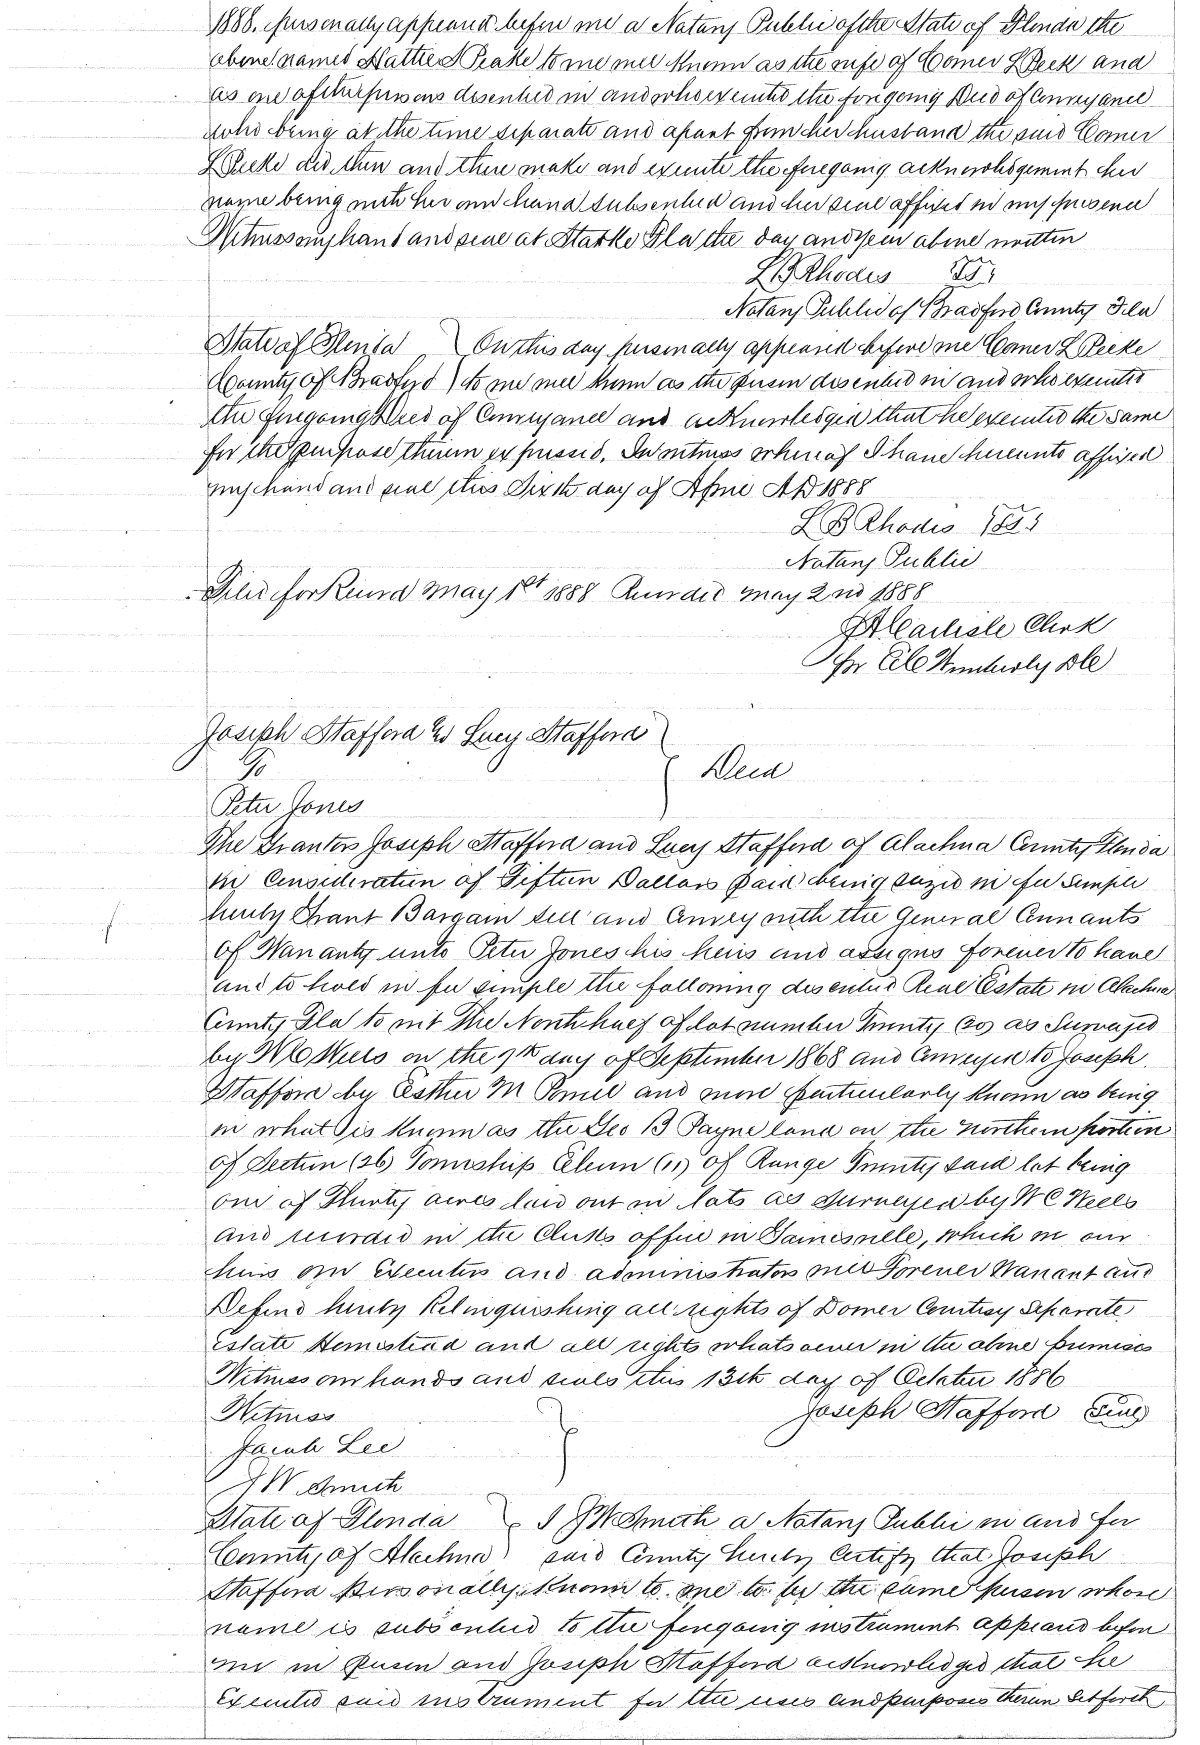 1888. personally appeared before me a Notary Public of the State of Florida the
above named Hattie S Peeke to me well known as the wife of Comer L Peek and
as one of the persons described in and who executed the foregoing Deed of Conveyance
who being at the time separate and apart from her husband the said Comer
L Peeke did then and there make and execute the foregoing acknowledgement her
name being with her own hand subscribed and her seal affixed in my presence
Witness my hand and seal at Starke Fla the day and year above written
L B Rhodes
Notary Public of Bradford County Fla
State of Florida } On this day personally appeared before me Comer L Peeke
County of Bradford } to me well known as the person described in and who executed
the foregoing Deed of Conveyance and acknowledged that he executed the same
for the purpose therein expressed. In witness whereof I have hereunto affixed
my hand and seal this Sixth day of April AD 1888
L B Rhodes
Notary Public
Filed for Record May 1st 1888 Recorded May 2nd 1888
J A Carlisle Clerk
for Wimberly DC
Joseph Stafford & Lucy Stafford }
To } Deed
Peter Jones
The Grantors Joseph Stafford and Lucy Stafford of Alachua County Florida
in Consideration of Fiftten Dollars paid being seized in fee Simple
hereby Grant Bargain sell and Convey with the General Covenants
of Warranty unto Peter Jones his heirs and assigns forever to have
and to hold in fee simple the following described Real Estate in Alachua
County Fla to wit The North half of lot number Twenty (20) as Surveyed
by W C Wells on the 9th day of September 1868 and Conveyed to Joseph
Stafford by Esther M and more particularly known as being
in what is known as the Geo B Payne land on the Northern portion
of Section (26) Township Eleven (11) of Range Twenty said lot being
one of Thirty acres laid out in lots as surveyed by W C Wells
and recorded in the Clerks office in Gainesville, which we our
heirs our Executors and administrators will Forever Warrant and
Defend hereby Relinquishing all rights of Dower Courtesy Separate
Estate Homestead and all rights whatsoever in the above premises
Witness our hands and seals this 13th day of October 1886
Witness } Joseph Stafford Seal
Jacob Lee
J W Smith
State of Florida } I J W Smith a Notary Public in and for
County of Alachua } said County hereby Certify that Joseph
Stafford personally known to me to be the same person whose
name is subscribed to the foregoing instrument appeared before
me in person and Joseph Stafford acknowledged that he
Executed said instrument for the uses and purposes therein Set forth